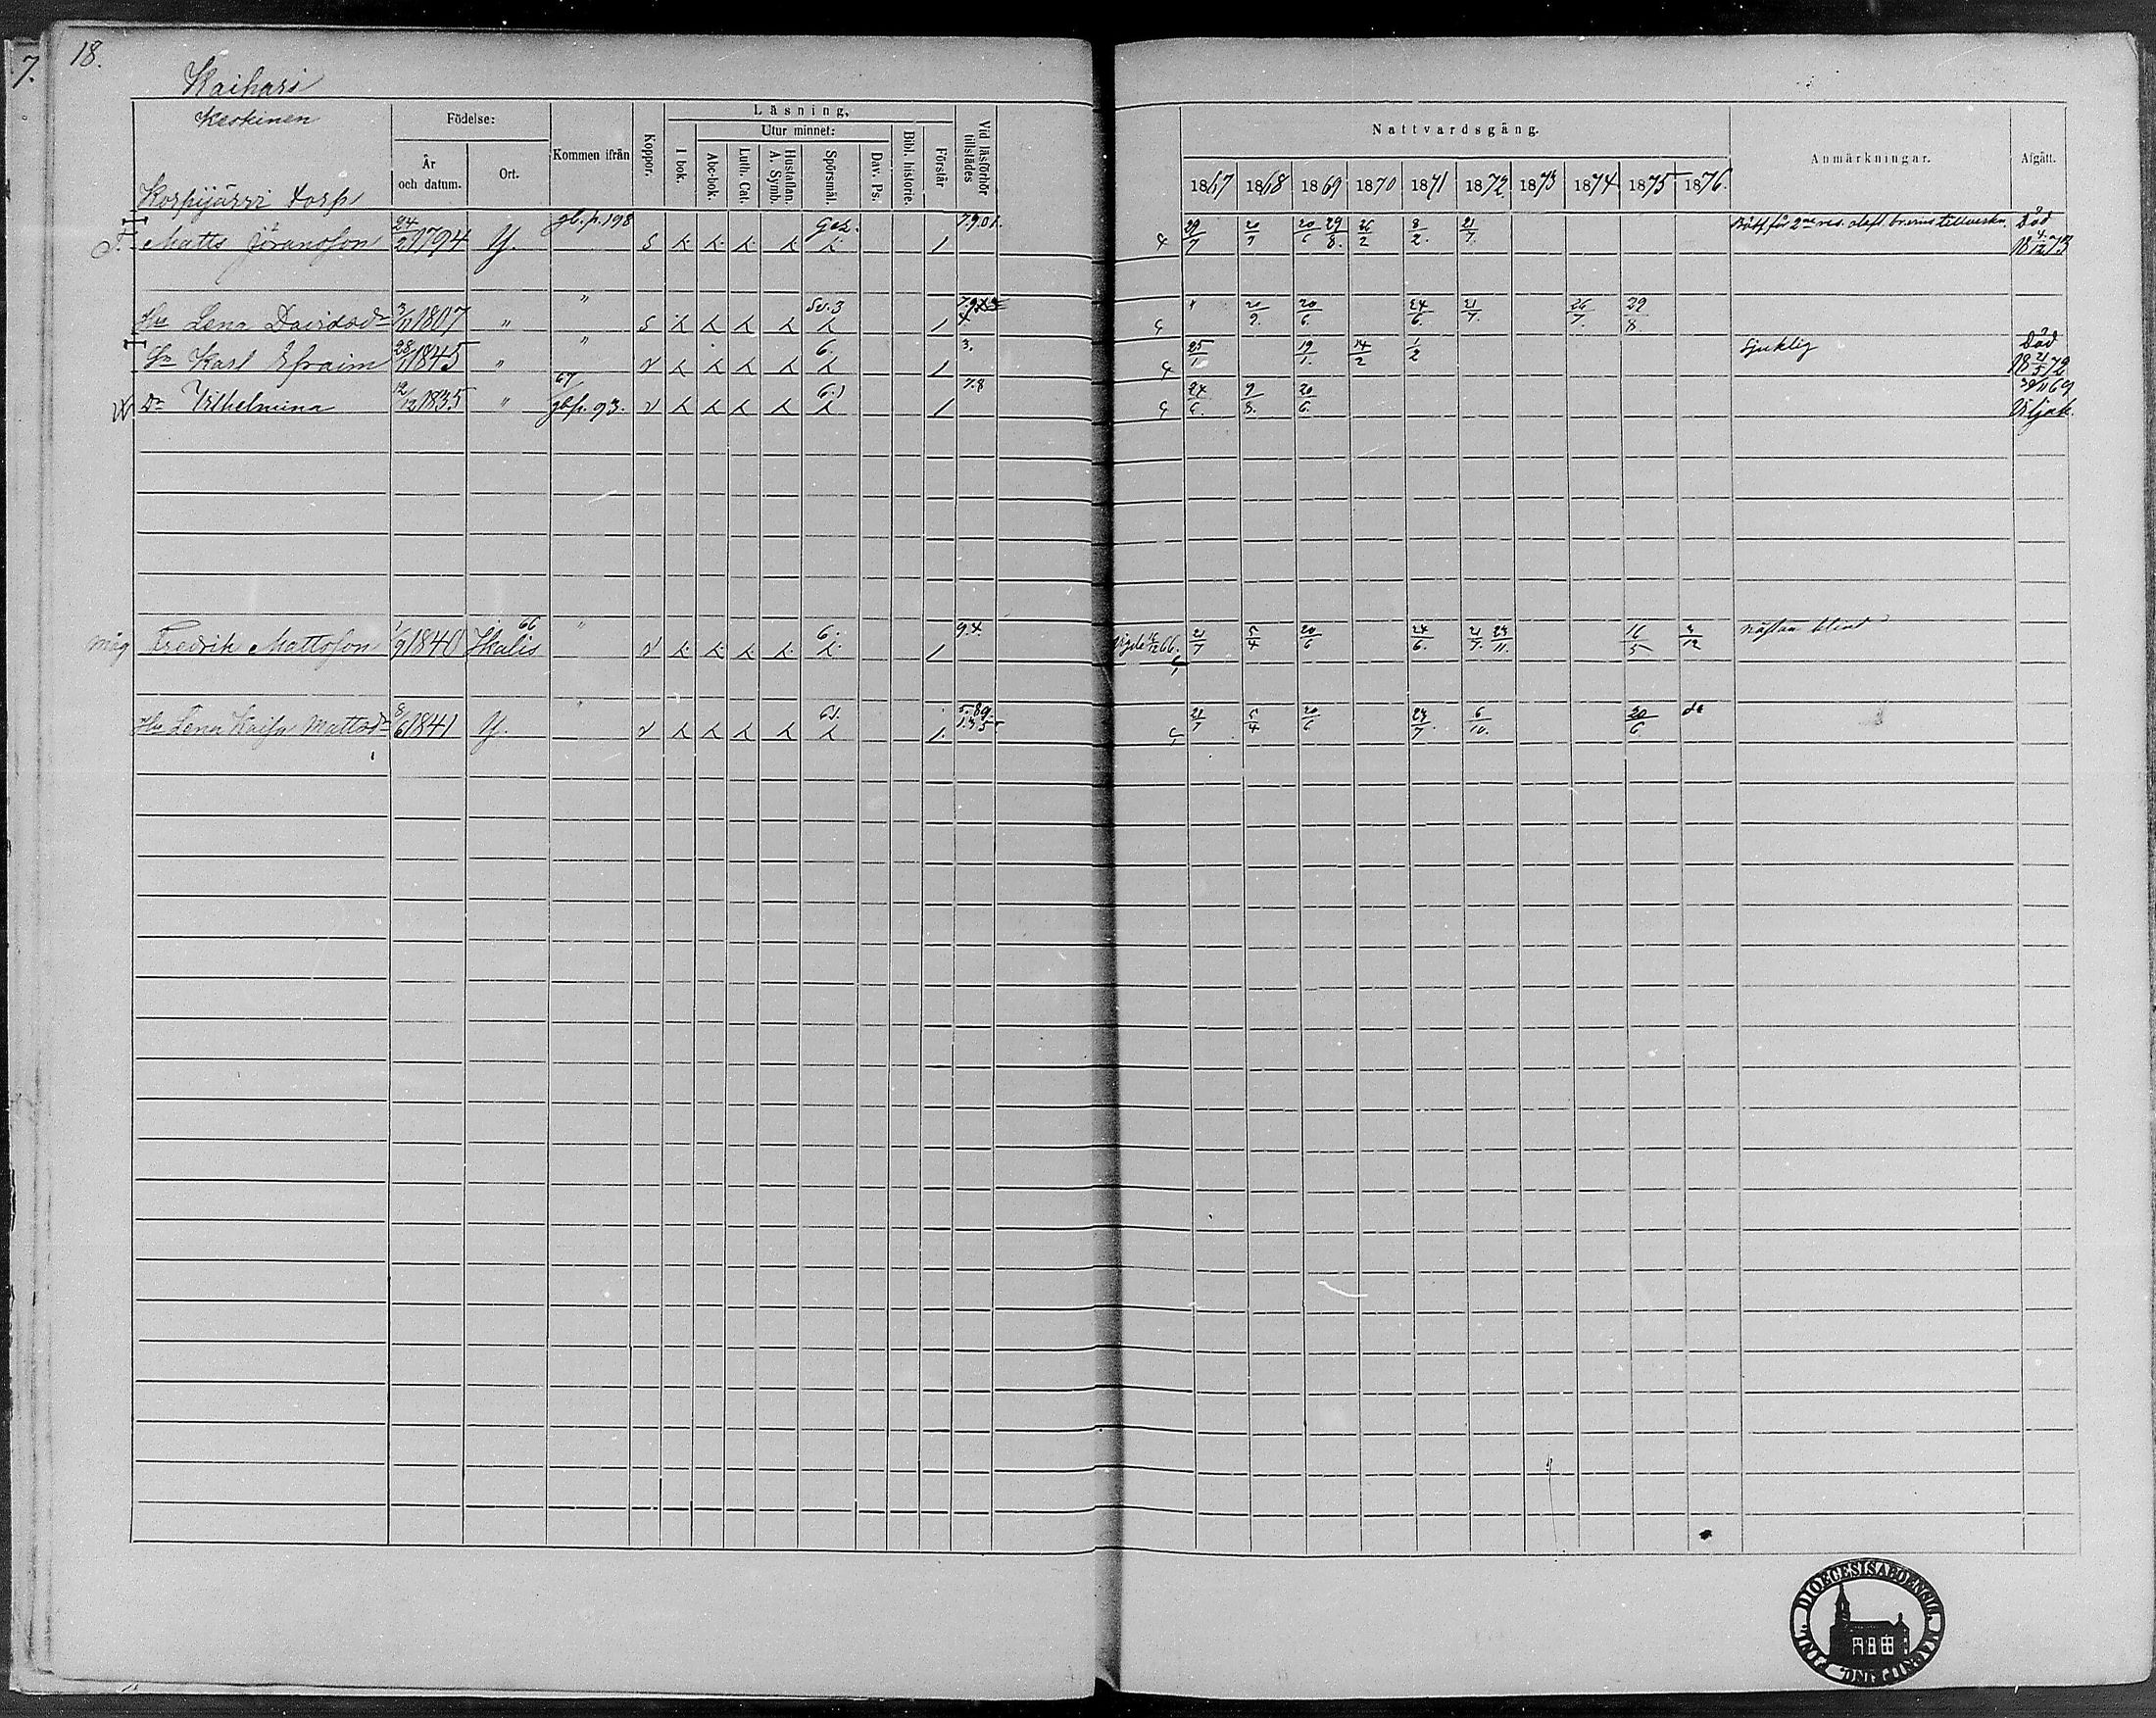 7.
18.
Kaihari
Keskinen
Korpijärvi torp
Födelse:
År och datum.
Ort.
Kommen ifrån
Koppor.
Läsning.
I bok.
Utur minnet:
Abc-bok.
Luth. Cat.
Hustaflan. A. Symb.
Spörsmål.
Dav. Ps.
Bibl. historie.
Förstår
Vid läsförhör tillstädes
Nattvardsgång.
1867 1868 1869 1870 1871 1872 1873 1874 1875 1876.
Anmärkningar.
Afgått.
T. Matts Jöransson 24/2 1794 Y. gb. p. 198 s 7.9.01. 29/7 20/9 20/6 29/8. 26/2 8/2. 21/7. Död 18 4/12 73
Hu Lena Davidsdr 3/11 1807 " " s Sv. 3 " 20/9. 20/6. 24/6. 21/7. 26/7. 29/8.
Sn Karl Efraim 28/1 1845 " " v 6. 3. 25/1 19/1. 14/2 1/2 Sjuklig Död 18 21/5 72
Dr Vilhelmina 12/12 1835 " 67 gbp. 93. v 6.1 7.8 24/6. 9/8. 20/6. 69 Viljak.
måg Fredrik Mattsson 1/9 1840 Ikalis 66 " v 6. 9.4 vigde 66. 21/7 5/4 20/6 24/6. 21/7. 24/11. 16/5 3/12 nästan blind
Hu Lena Kaisa Mattsdr 8/6 1841 Y. " v 6.1. 5.89. 1.3.5 21/7 5/4 20/6 23/7. 6/10. 20/6. do
SIG. DIOECESIS ABOENSIS MAGNI DUC. FINL.